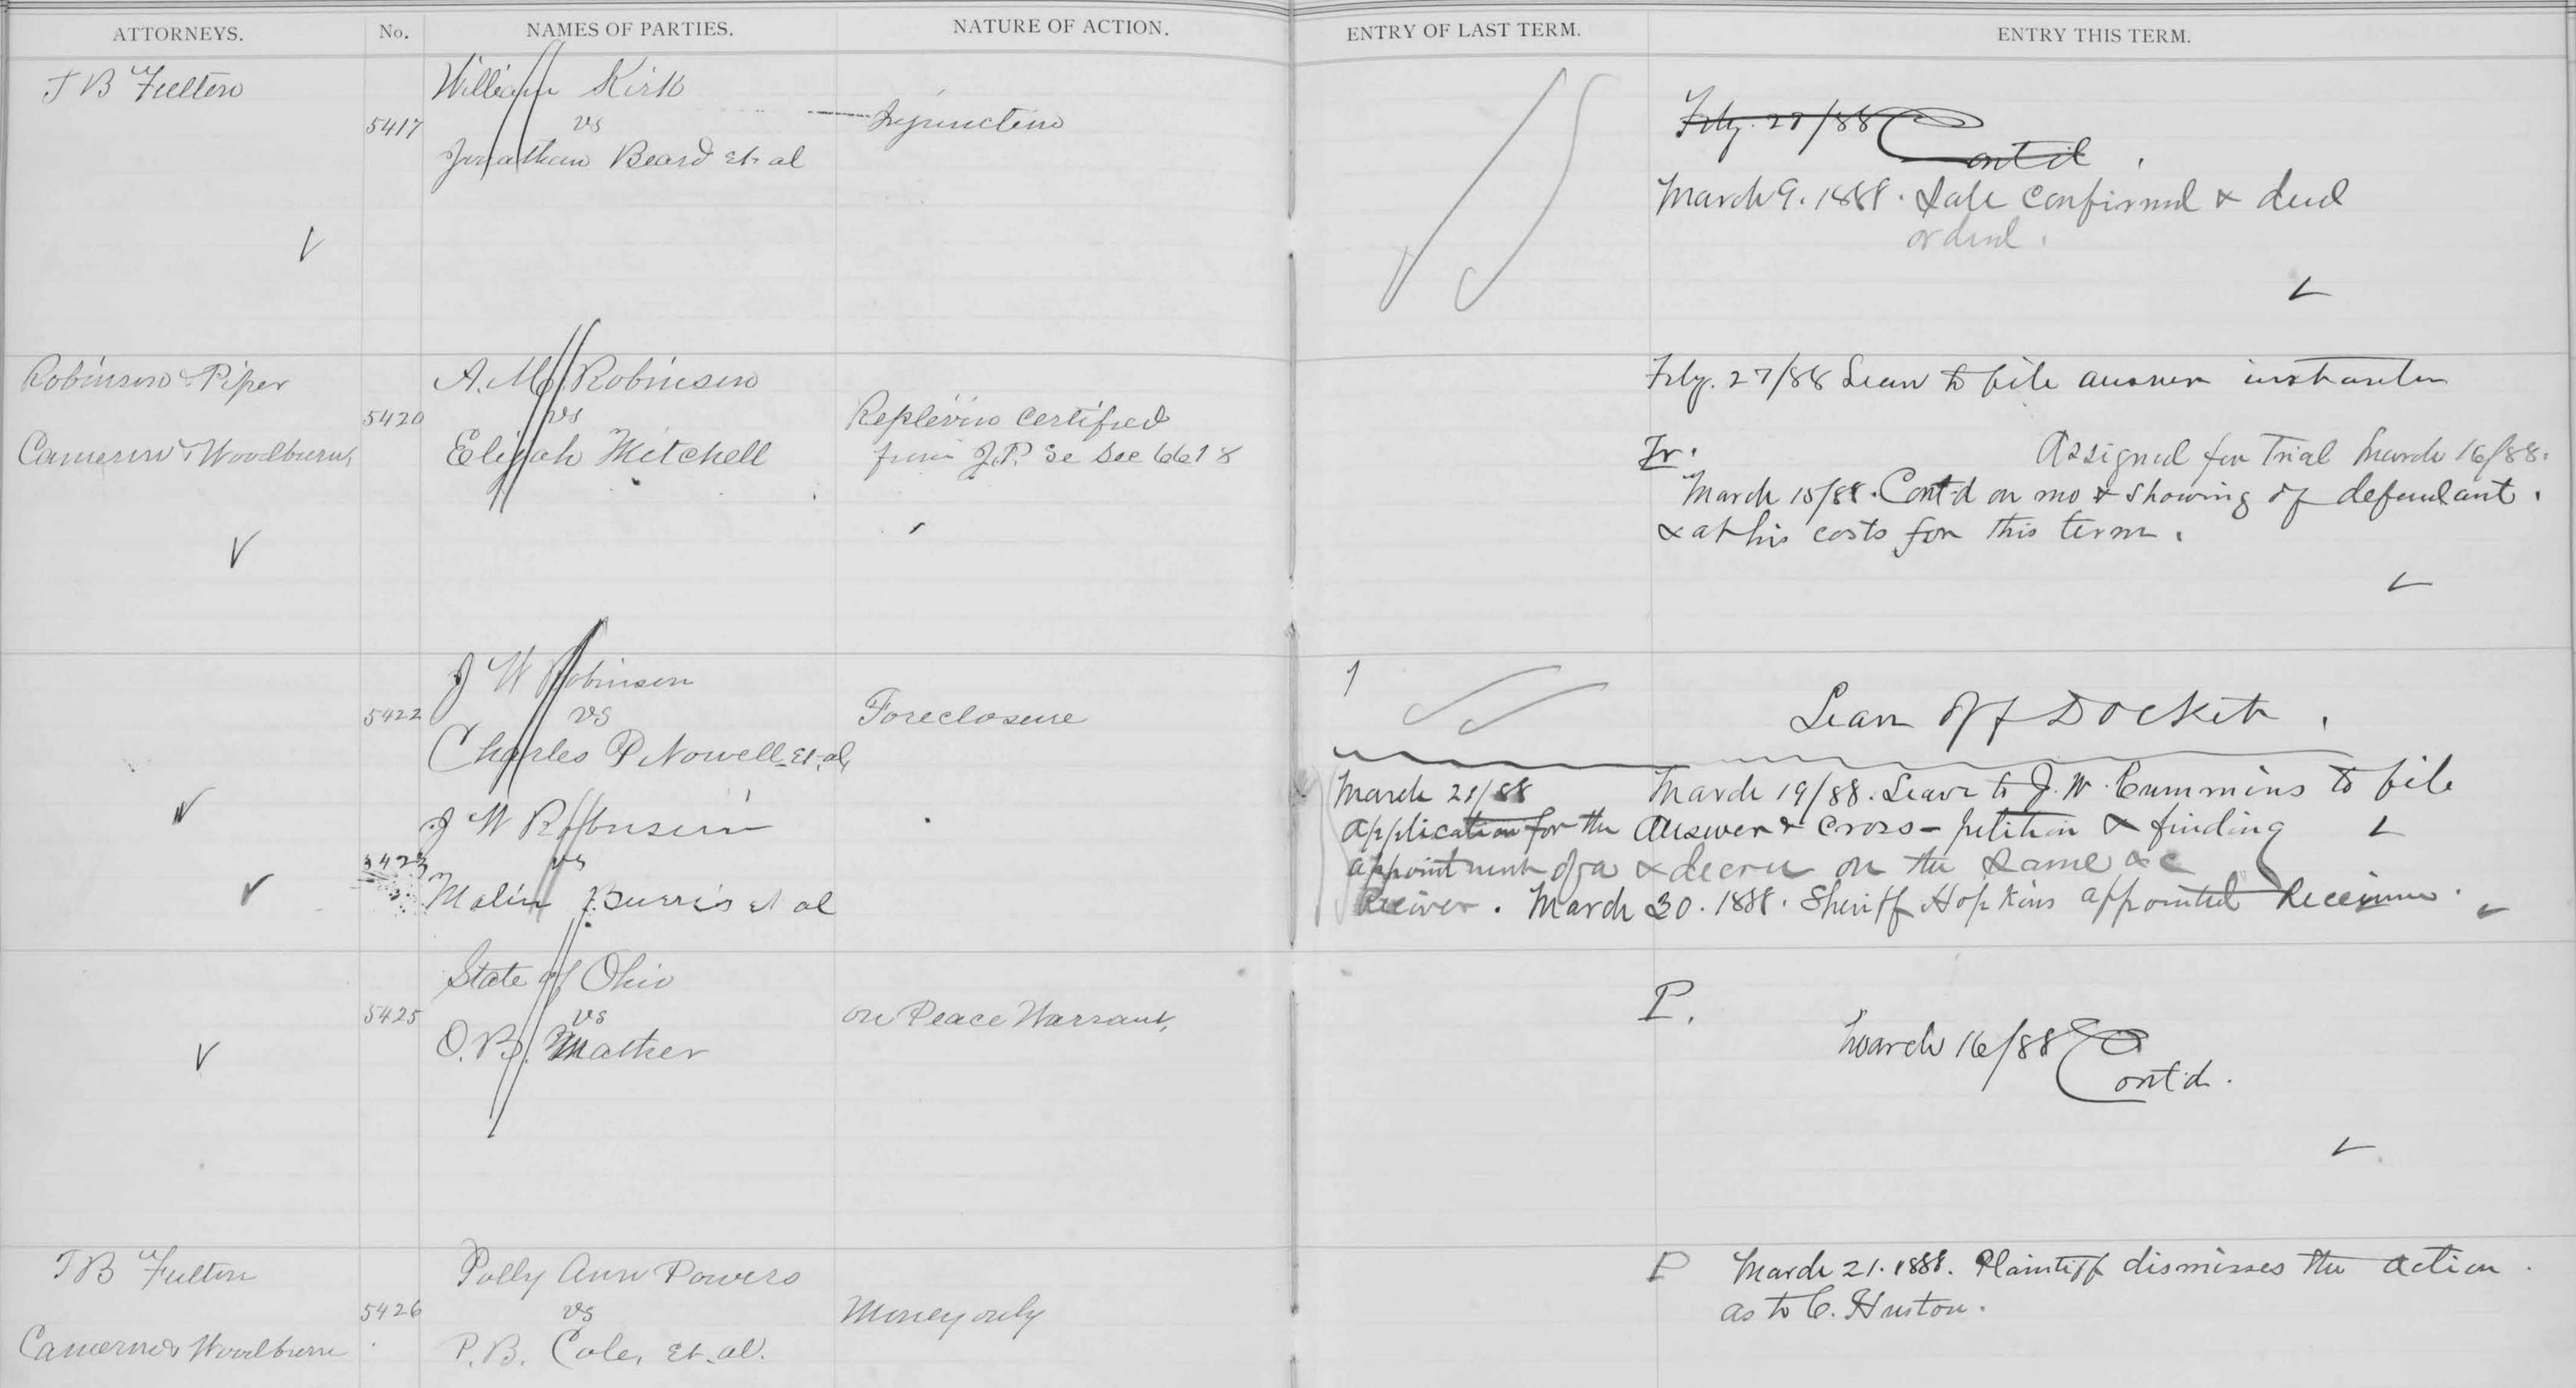 ATTORNEYS. No. NAMES OF PARTIES. NATURE OF ACTION. ENTRY OF LAST TERM. ENTRY THIS TERM.
J B Fulton
5417
William Kirk
vs
Jonathan Beard et al
Injunction
Feby. 27/88 Contd
March 9. 1888. Sale confirmed & deed
ordered.
Robinson & Piper
Cameron & Woodburn
5420
A. M. Robinson
vs
Elijah Mitchell
Replevin certified
from J.P. Se Sec 6618
Feby. 27/88 Leave to file answer instanter
Assigned for Trial March 16/88.
March 15/88. Cont'd on mo & showing of defendant.
& at his costs for this term.
5422
J W Robinson
vs
Charles P Nowell et al,
Foreclosure
Leave off Docket.
5423
J W Robinson
vs
Malin Burris et al
March 21/88
application for the
appointment of a
Receiver.
March 19/88. Leave to J. W. Cummins to file
answer & cross-petition & finding
& decree on the same &c
March 30. 1888. Sheriff Hopkins appointed Receiver.
5425
State of Ohio
vs
O. B. Mather
on Peace Warrant,
P.
March 16/88 Contd.
J B Fulton
Cameron & Woodburn
5426
Polly Ann Powers
vs
P. B. Cole, et al.
Money only
P March 21. 1888. Plaintiff dismisses the action.
as to C. Huston.